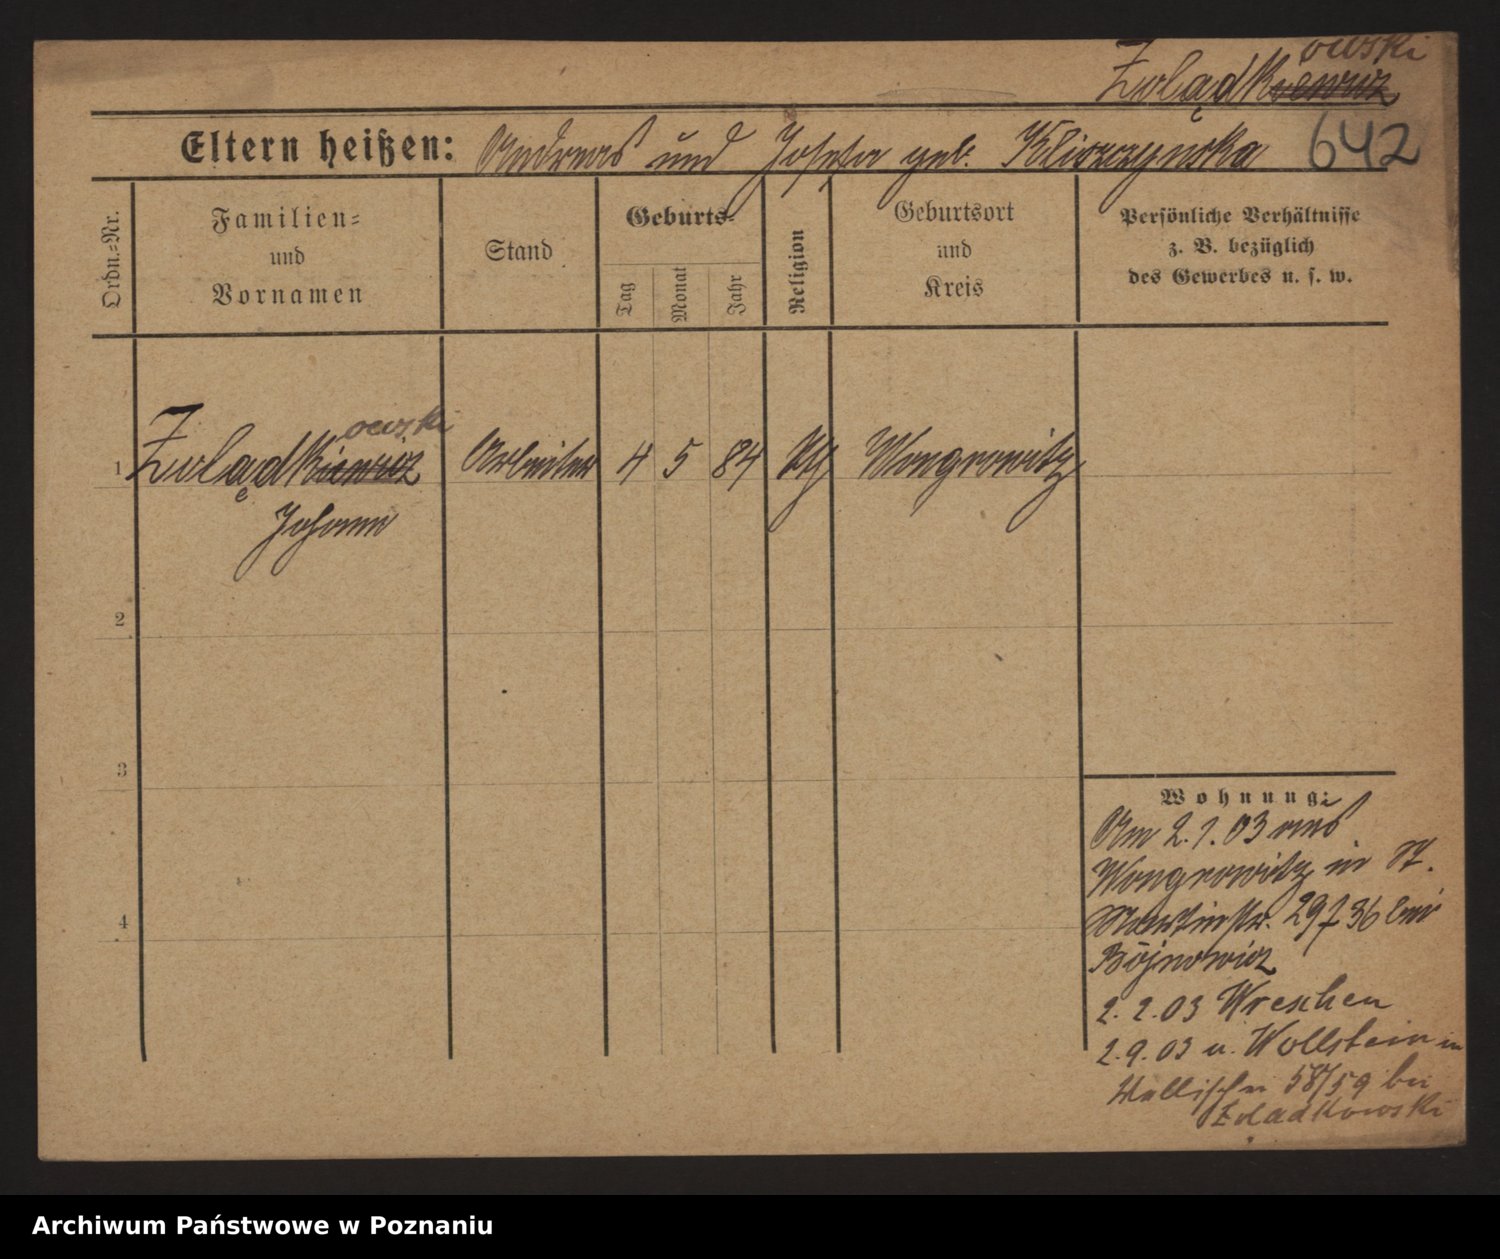 owski
Zolądkiewicz
Eltern heißen: Andreas und Josefa geb. Kliszczynska 642
Ordn.-Nr.
Familien-
und
Vornamen
Stand
Geburts-
Tag
Monat
Jahr
Religion
Geburtsort
und
Kreis
Persönliche Verhältnisse
z. B. bezüglich
des Gewerbes u. s. w.
owski
1 Zolądkiewicz Arbeiter 4 5 84 Wongrowitz
Johann
2
3
4
Wohnung:
Am 2.1.03 aus
Wongrowitz in St.
Martinstr. 29 36 bei
Bojnowicz
2.2.03 Wreschen
2.9.03 u. Wollstein in
Wallischei 58/59 bei
Zoladkowski
Archiwum Państwowe w Poznaniu